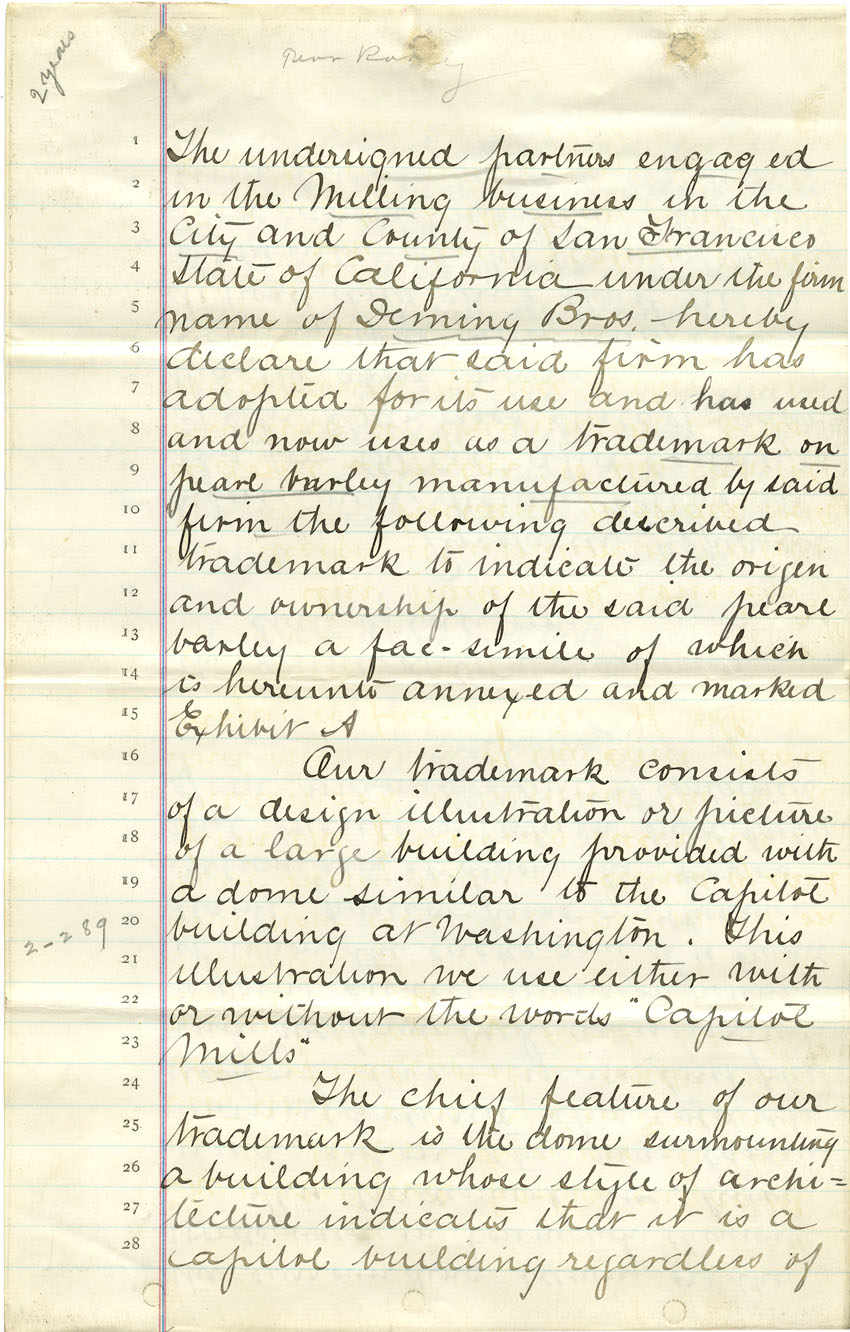 2 years
1 The undersigned partners engaged
2 in the Milling business in the
3 City and County of San Francisco
4 State of California under the firm
5 name of Deming Bros. hereby
6 declare that said firm has
7 adopted for its use and has used
8 and now uses as a trademark on
9 pearl barley manufactured by said
10 firm the following described
11 trademark to indicate the origen
12 and ownership of the said pearl
13 barley a fac-simile of which
14 is hereunto annexed and marked
15 Exhibit A
16 Our trademark consists
17 of a design illustration or picture
18 of a large building provided with
19 a dome similar to the Capitol
2-289
20 building at Washington. This
21 illustration we use either with
22 or without the words "Capitol
23 Mills"
24 The chief feature of our
25 trademark is the dome surmounting
26 a building whose style of archi=
27 tecture indicates that it is a
28 capitol building regardless of